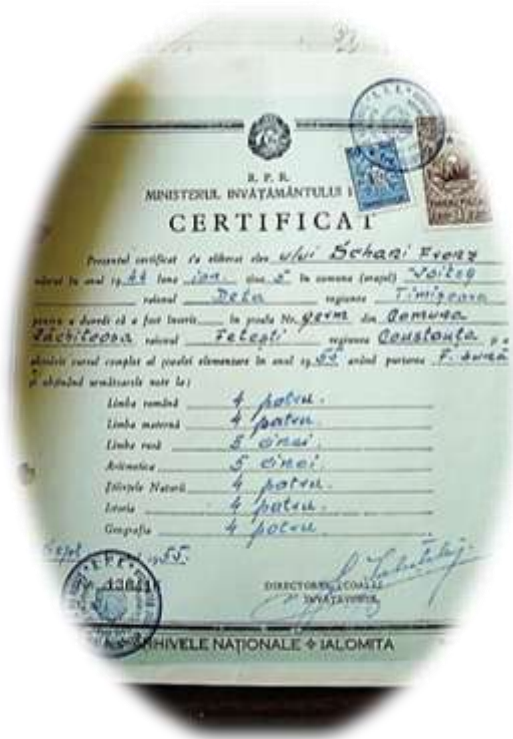 R.P.R.
MINISTERUL INVĂȚĂMÂNTULUI
CERTIFICAT
Prezentul certificat s'a eliberat elev ului Schani Franz
născut în anul 19 44 luna ian. ziua 5 în comuna (orașul) Voiteg
raionul Deta regiunea Timișoara
pentru a dovedi că a fost înscris în școala Nr. germ din Comuna
raionul Fetești regiunea Constanța și a
absolvit cursul complet al școalei elementare în anul 19 55 având purtarea F. bună
și obținând următoarele note la:
Limba română 4 patru.
Limba maternă 4 patru.
Limba rusă 5 cinci.
Aritmetica 5 cinci.
Științele Naturii 4 patru.
Istoria 4 patru.
Geografia 4 patru.
Sept 1955.
DIRECTORUL ȘCOALEI
ARHIVELE NAȚIONALE IALOMITA